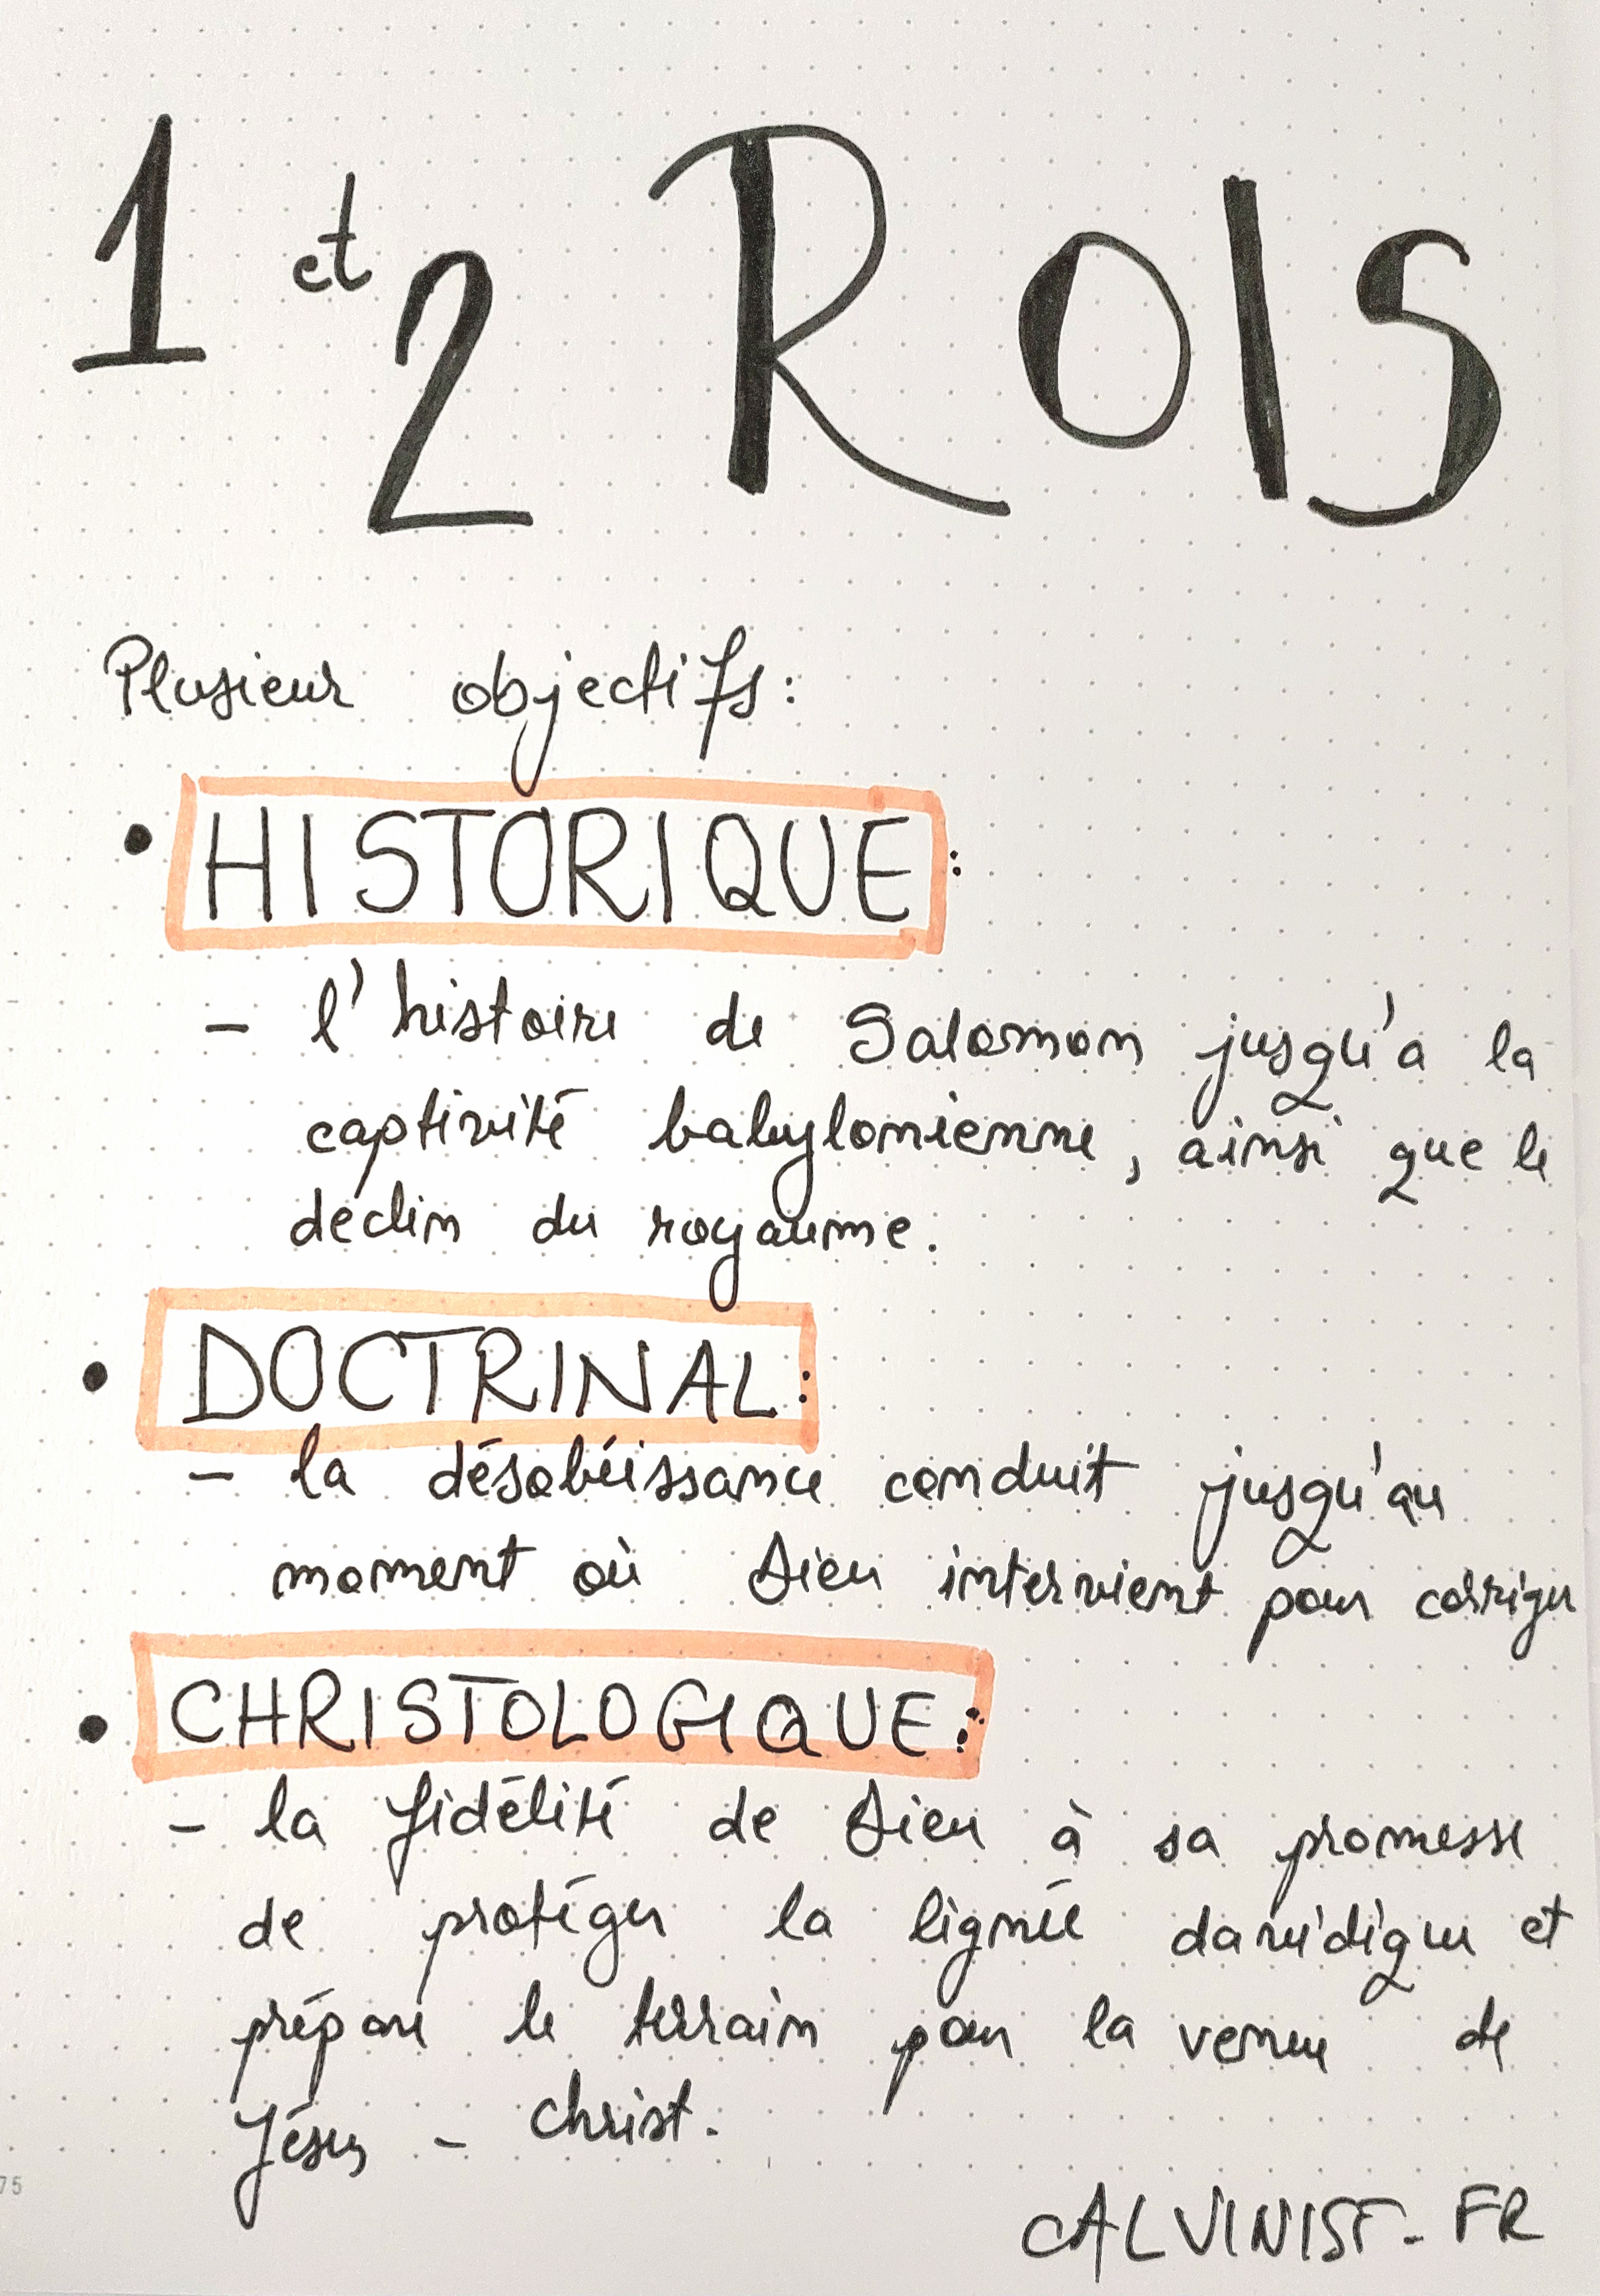 1 et 2 ROIS
Plusieur objectifs:
• HISTORIQUE:
- l'histoire de Salomon jusqu'a la
captivité babylonienne, ainsi que le
declin du royaume.
• DOCTRINAL:
- la désobéissance conduit jusqu'au
moment où Dieu intervient pour corriger
• CHRISTOLOGIQUE:
- la fidélité de Dieu à sa promesse
de protéger la lignée davidique et
prépare le terrain pour la venue de
Jésus - Christ.
CALVINIST-FR
75